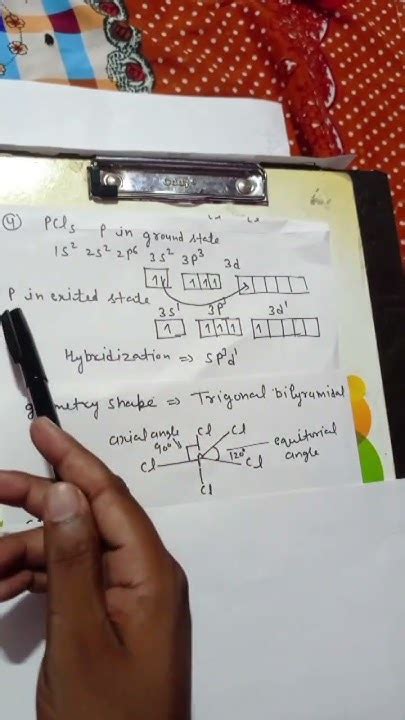 ④ PCl5 P in ground state
1s² 2s² 2p⁶ 3s² 3p³
3d
1 1 1 1 1
P in exited state
3s¹ 3p³ 3d¹
1 1 1 1 1
Hybridization ⇒ sp³d¹
geometry shape ⇒ Trigonal bipyramidal
axial angle
90°
Cl Cl
equitorial
angle
120°
Cl P Cl
Cl